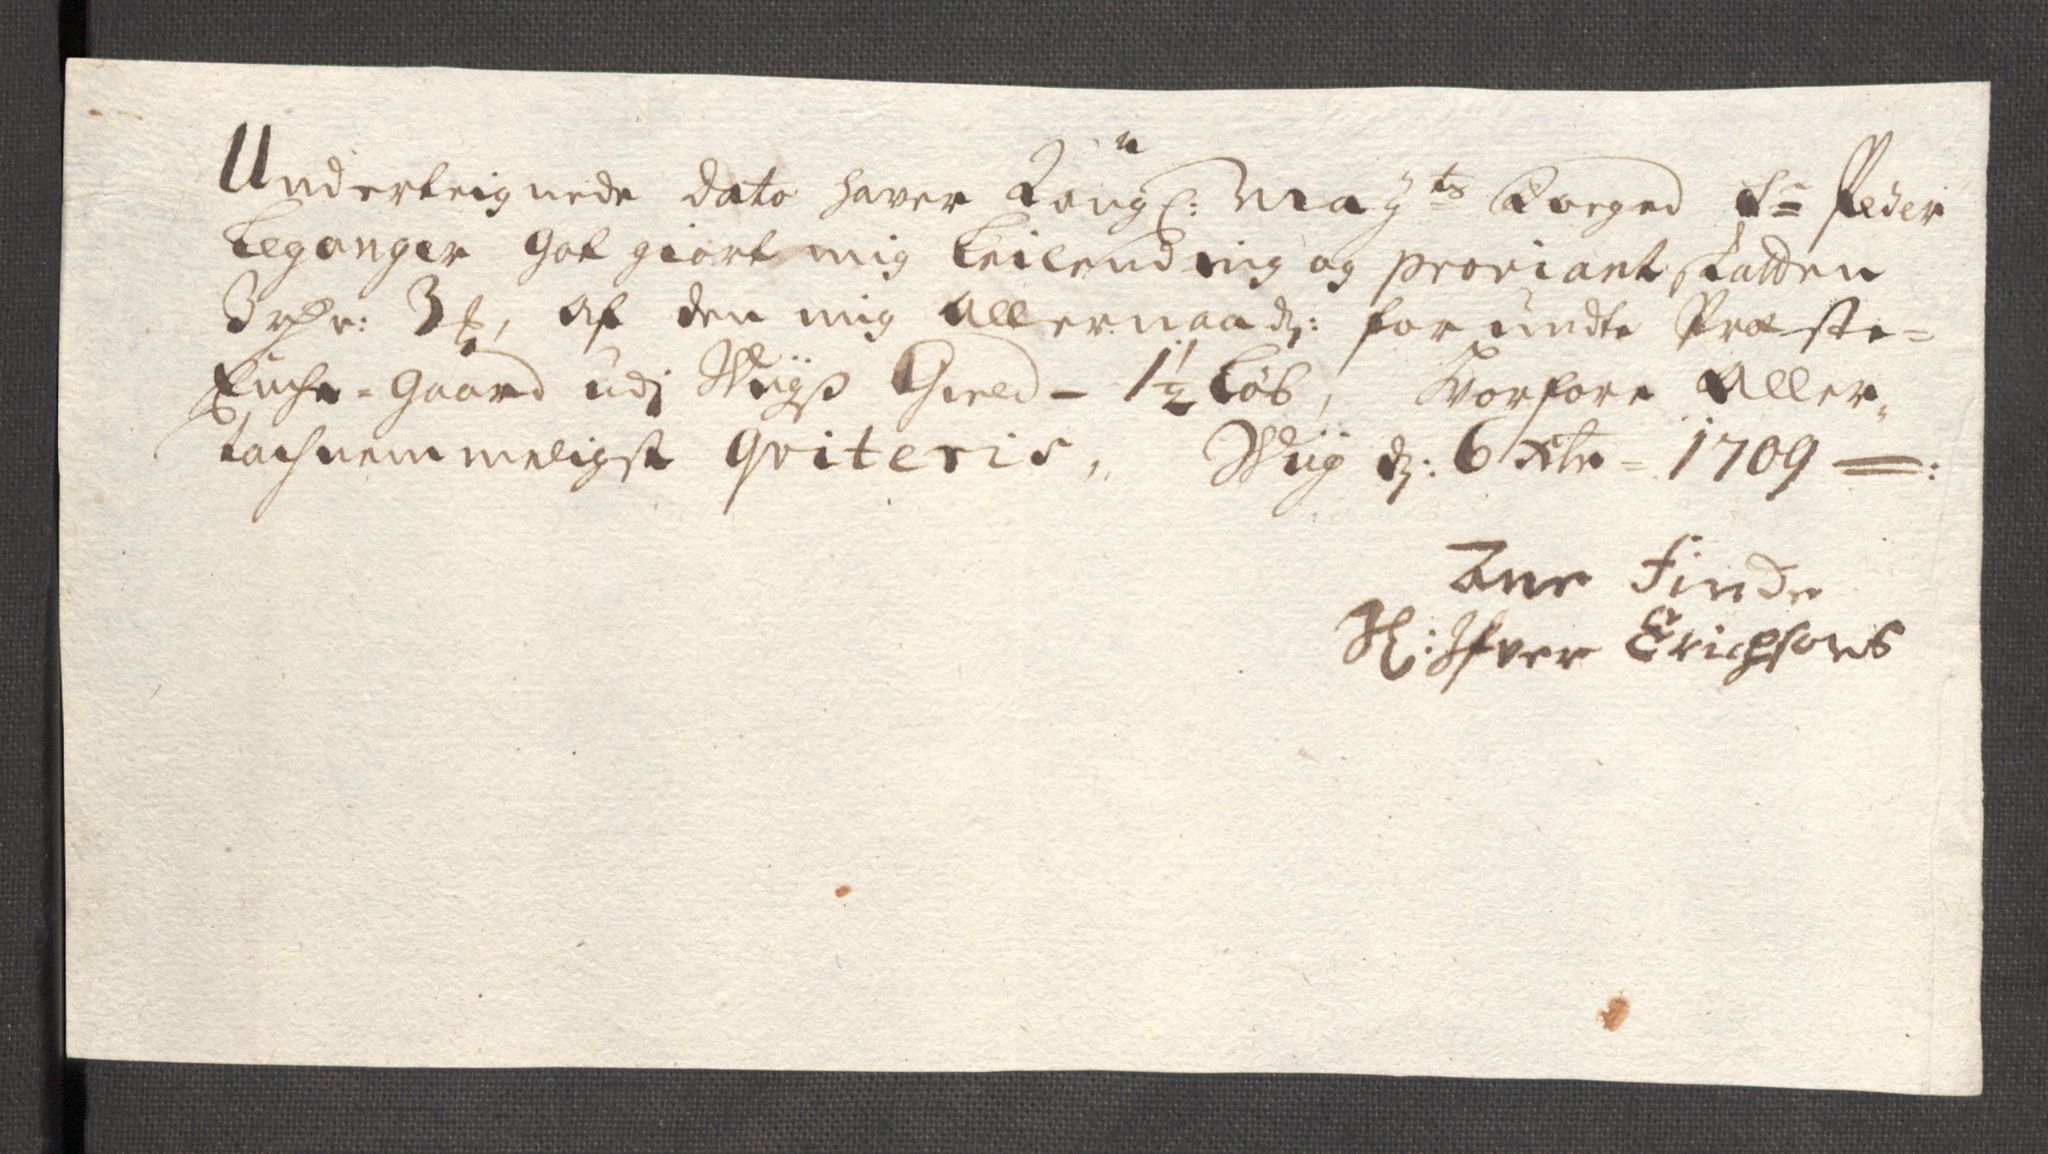 Underteignede dato haver Kong: Mayts Foged Sr Peder
Leganger Got giort mig Leilending og proviant skatten
3 rdr: 3 ß, Af den mig Allernaad: for undte Præste-
Enche-Gaard udj Wiigs Gield - 1½ Løb, Hvorfore Aller-
tachnemmeligst qviteris, Wiig d: 6 Xbr - 1709
Ane Finde
Sl: Ifver Erichsøns